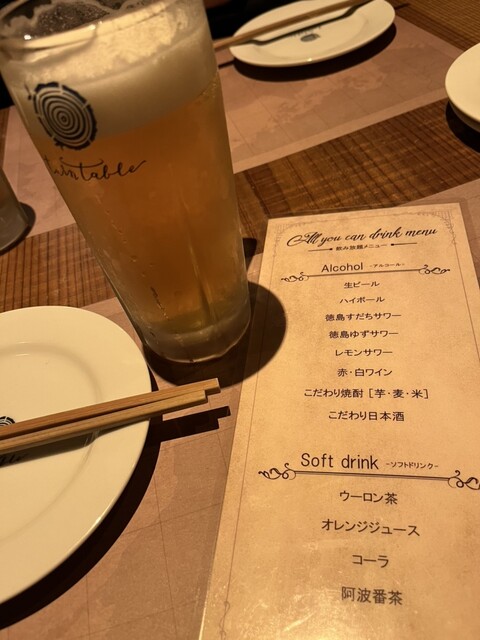 turntable
All you can drink menu
飲み放題メニュー
Alcohol -アルコール-
生ビール
ハイボール
徳島すだちサワー
徳島ゆずサワー
レモンサワー
赤・白ワイン
こだわり焼酎 [芋・麦・米]
こだわり日本酒
Soft drink -ソフトドリンク-
ウーロン茶
オレンジジュース
コーラ
阿波番茶